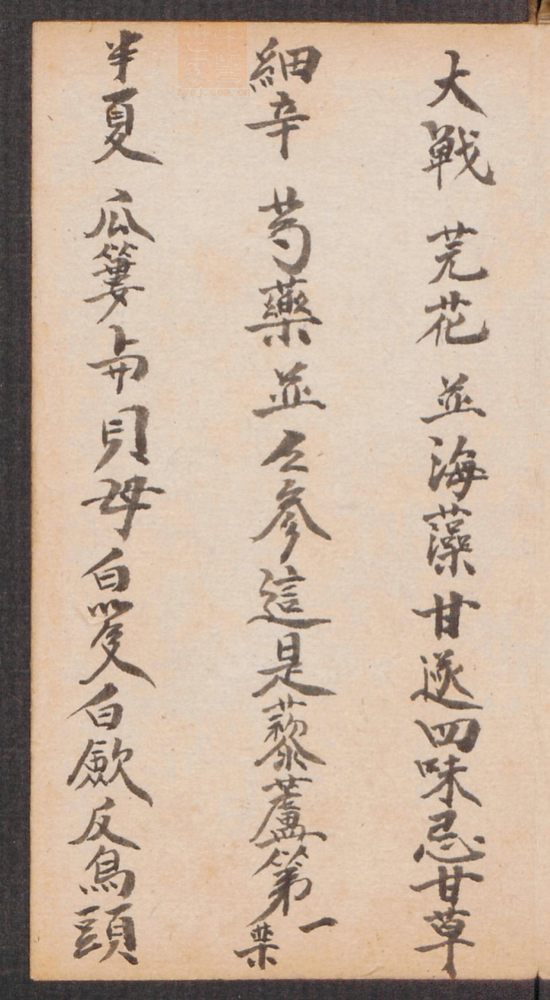 大戟 芫花 並海藻甘遂四味忌甘草
細辛 芍藥並人參這是藜蘆第一藥
半夏 瓜簍與貝母白芨白歛反烏頭